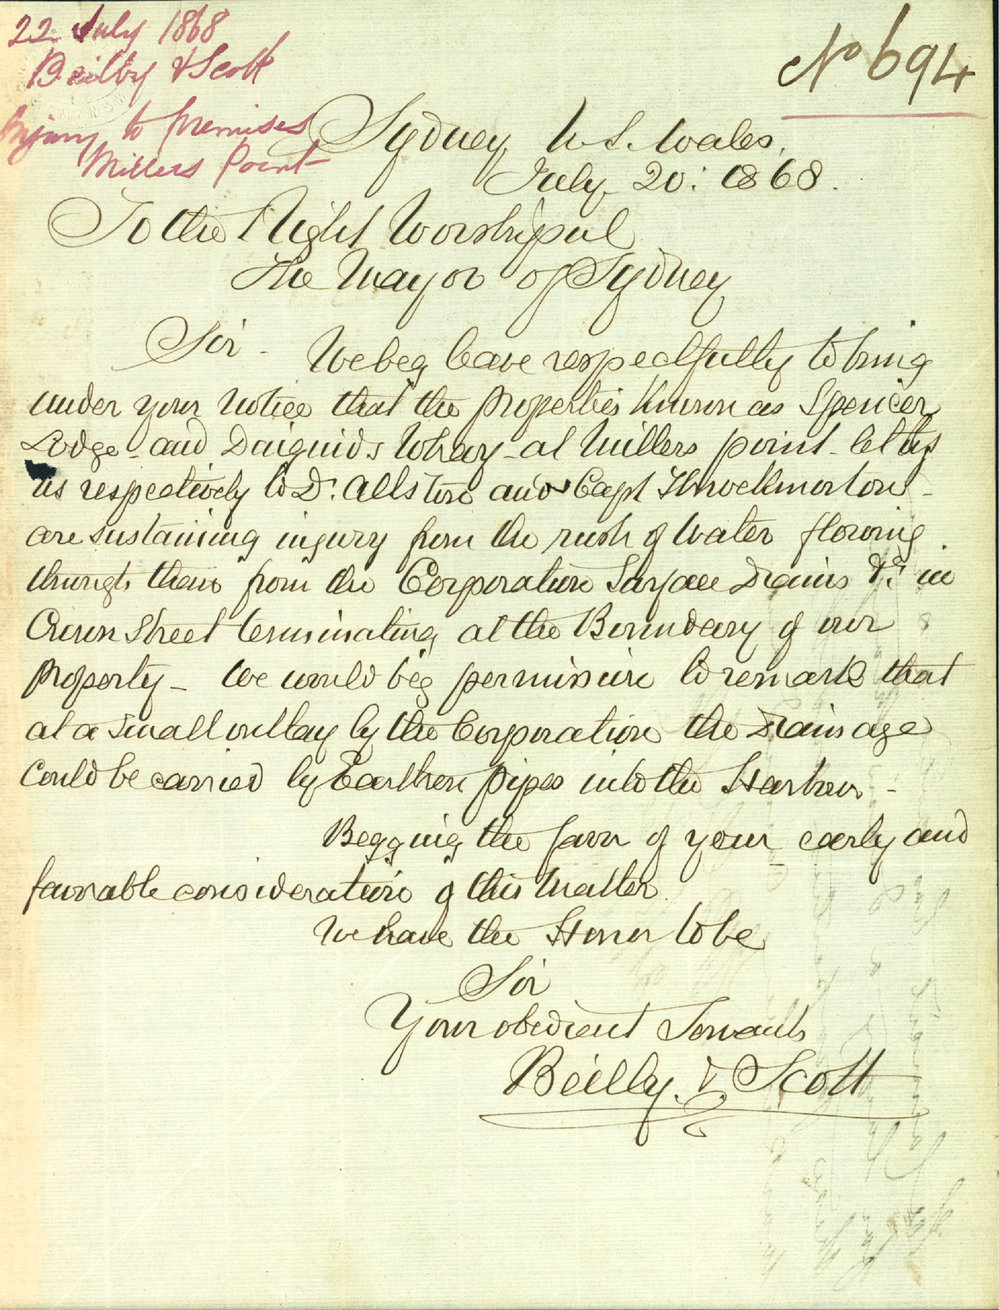 22 July 1868
Beilby & Scott
Injury to premises
Millers Point
No 694
Sydney N S. Wales,
July 20: 1868.
To the Right Worshipful
The Mayor of Sydney
Sir - We beg leave respectfully to bring
under your notice that the properties known as Spencer
Lodge - and Wharf - at Millers point - let by
us respectively to Dr. Allstone and Capt Throckmorton -
are sustaining injury from the rush of Water flowing
through them from the Corporation Surface Drains &c. in
Crown Street terminating at the Boundary of our
property - We would beg permission to remark that
at a small outlay by the Corporation the Drainage
could be carried by Earthen pipes into the Harbour -
Begging the favor of your early and
favorable consideration of this Matter
We have the Honor to be
Sir
Your obedient Servants
Beilby & Scott